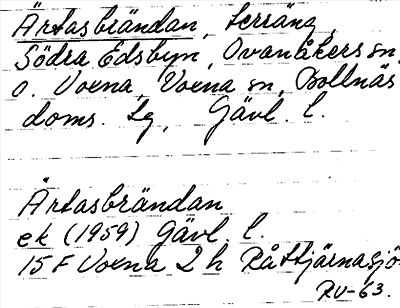 Ärtasbrändan, terräng,
Södra Edsbyn, Ovanåkers sn,
o. Voxna, Voxna sn, Bollnäs
doms. lg, Gävl. l.
Ärtasbrändan
ek (1959) Gävl. l.
15 F Voxna 2 h Råttjärnasjö
RV-63.